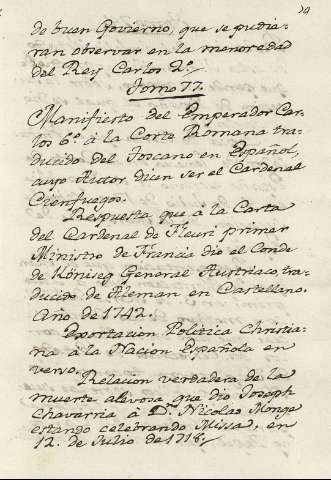 de buen Govierno, que se pudie-
ran observar en la menoredad
del Rey Carlos 2º./
Tomo 77.
Manifiesto del Emperador Car-
los 6º. â la Corte Romana tra-
ducido del Toscano en Español,
cuyo Autor dicen ser el Cardenal
Cienfuegos.
Respuesta que â la Carta
del Cardenal de Fleuri primer
Ministro de Francia dio el Conde
de Kôniseg General Austriaco, tra-
ducido de Aleman en Castellano.
Año de 1742.
Exortacion Politica Christia-
na â la Nacion Española en
verso.
Relacion verdadera de la
muerte alevosa que dio Joseph
Chavarria â Dn. Nicolas Monge
estando celebrando Missa, en
12. de Julio de 1718./